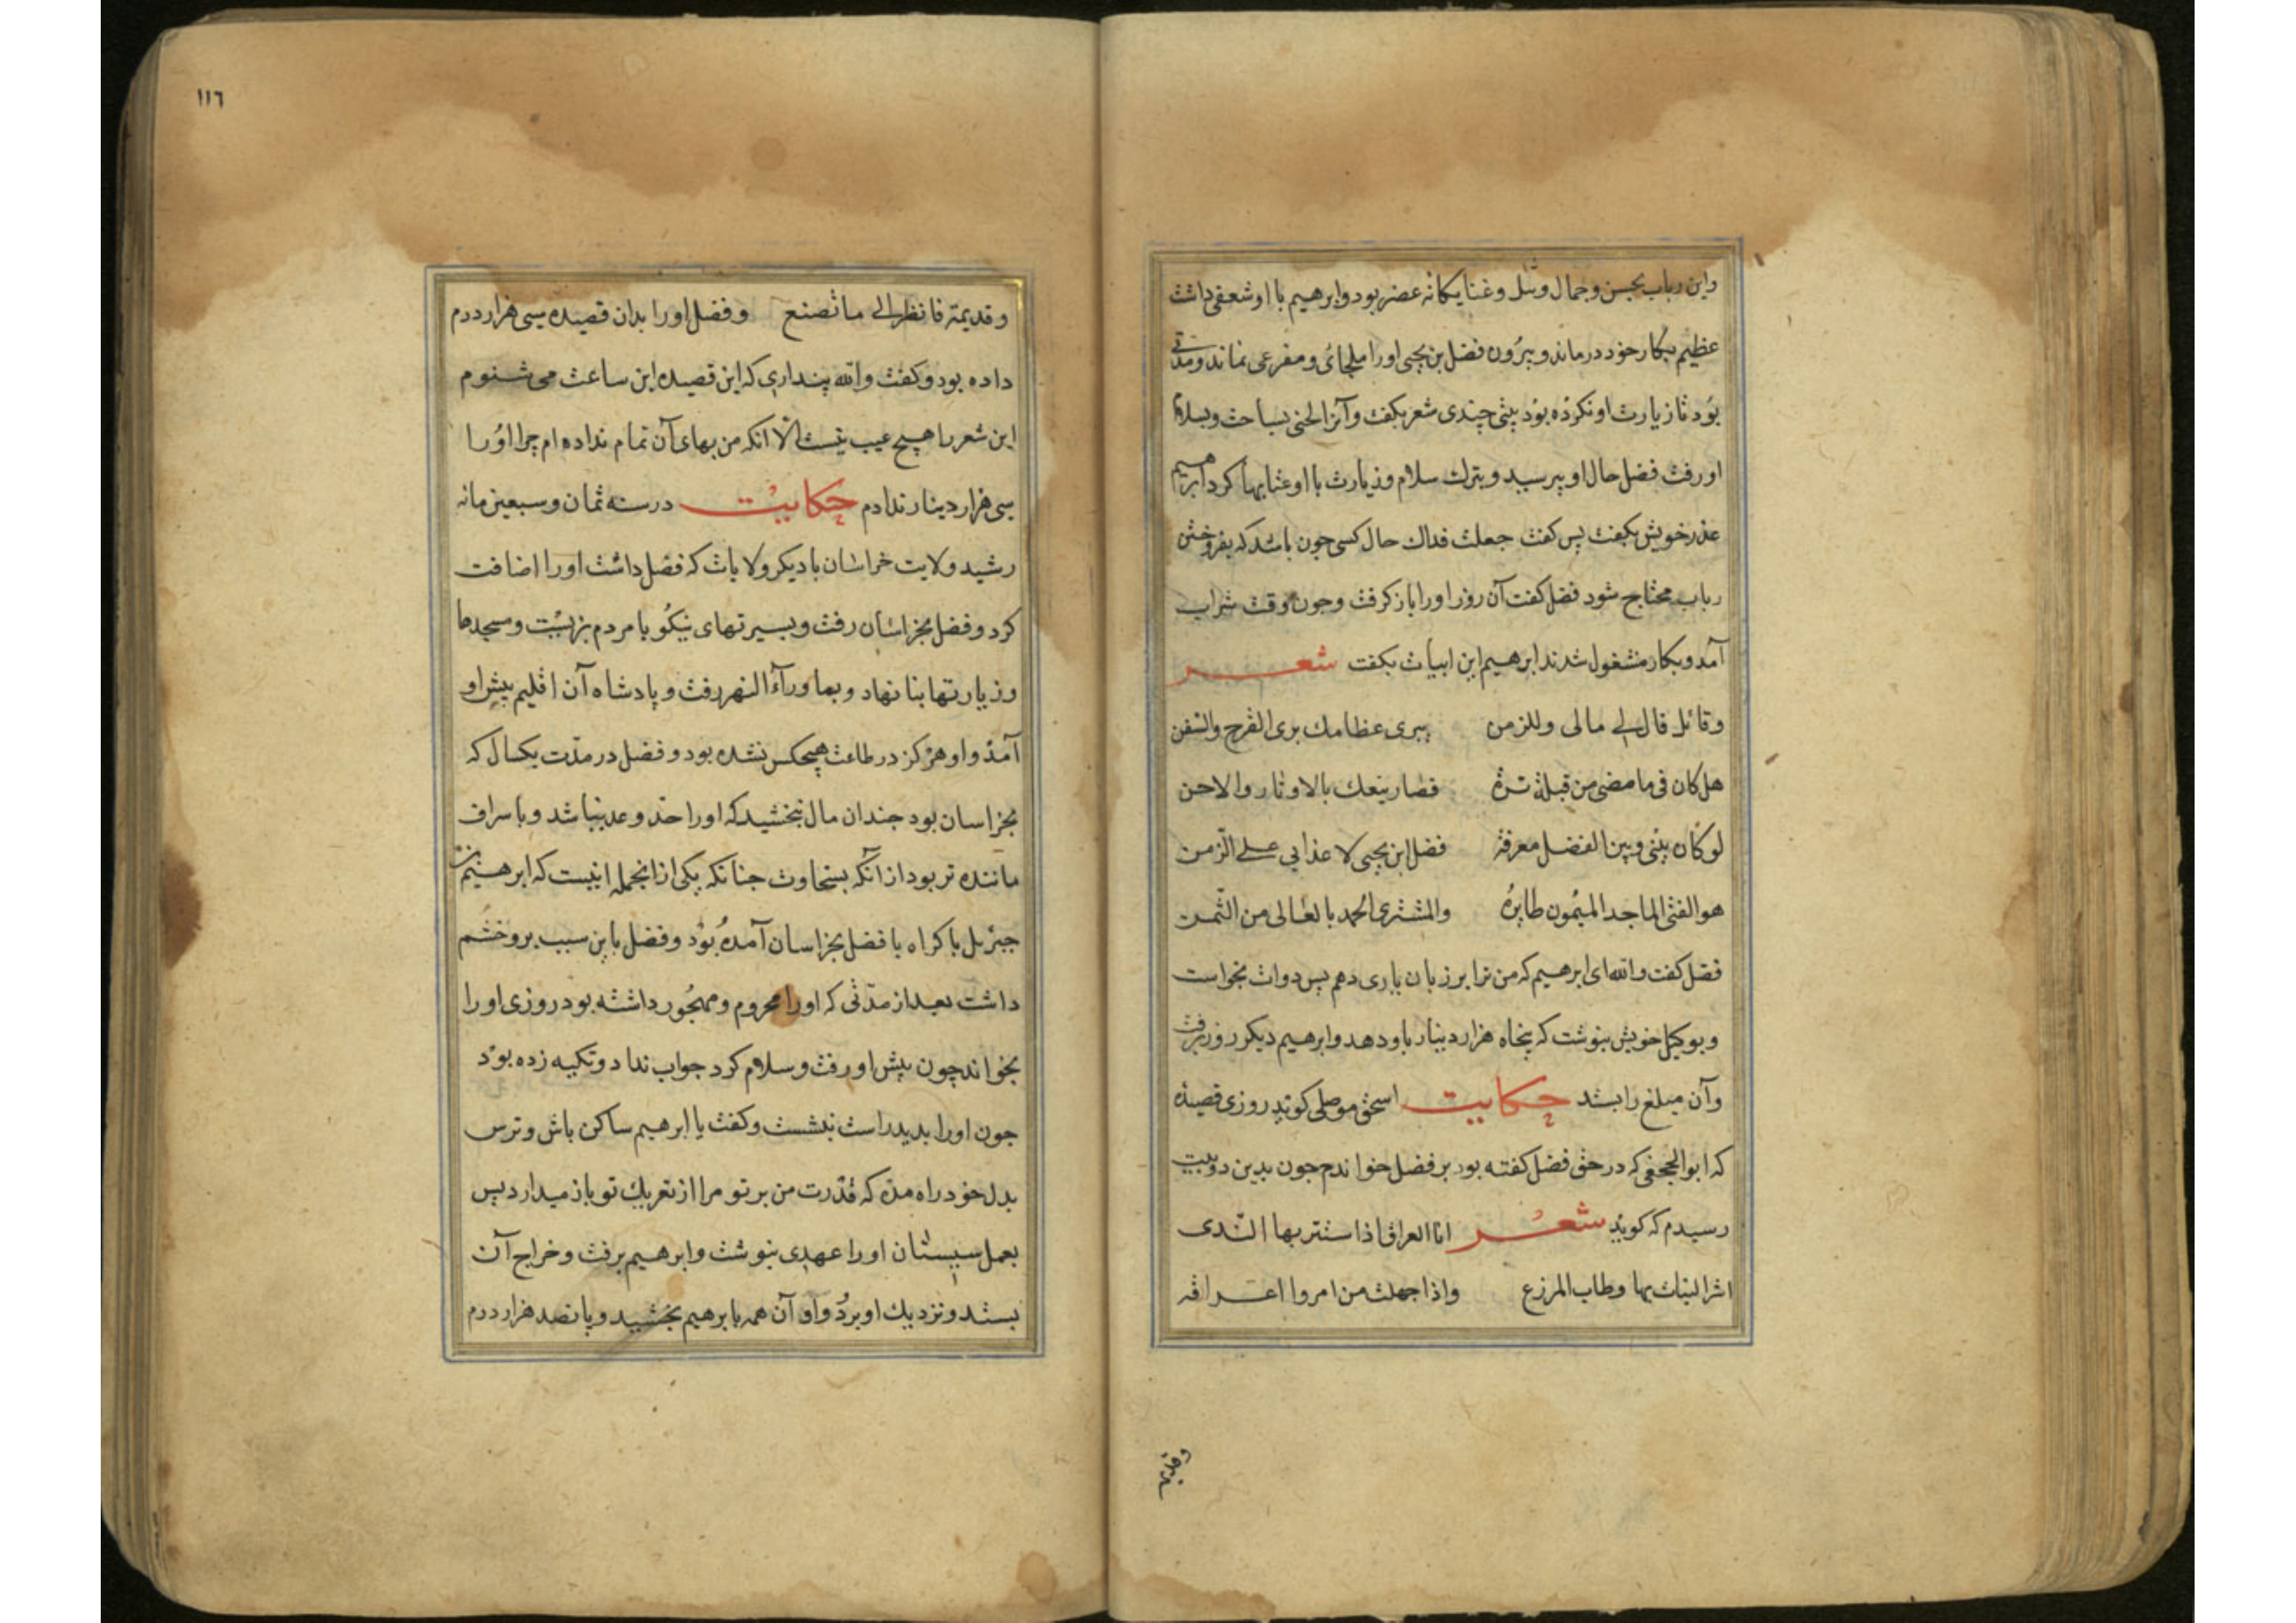 واین رباب بحسن وجمال و غنا یکانه عصر بود وابرهیم با او شعفی داشت
عظیم بکار خود درماند وبیرون فضل بن یحیی اورا ملجائی ومفرعی نماند ومدتی
بود تا زیارت او نکرده بود بیتی چندی شعر بکفت وآنرا لحنی بساخت وبسلام
او رفت فضل حال او بپرسید وبترك سلام وزیارت با او عتابها کرد ابرهیم
عذر خویش بکفت پس کفت جعلت فداك حال کسی چون باشد که بفروختن
رباب محتاج شود فضل کفت آن روز اورا باز کرفت وچون وقت شراب
آمد وبکار مشغول شدند ابرهیم این ابیات بکفت شعر
وقائل قال لی مالی وللزمن یبری عظامك بری القدح والسفن
هل کان فی ما مضی من قبله ترة فصار یبغیك بالاوتار والاحن
لو کان بینی وبین الفضل معرفة فضل ابن یحیی لاعدانی علی الزمن
هو الفتی الماجد المیمون طایره والمشتری الحمد بالغالی من الثمن
فضل کفت والله ای ابرهیم که من ترا بر زمان یاری دهم پس دوات بخواست
وبوکیل خویش بنوشت که پنجاه هزار دینار باو دهد وابرهیم دیکر روز برفت
وآن مبلغ را بستد حکایت اسحق موصلی کوید روزی قصیده
که ابو الحجفی که در حق فضل کفته بود بر فضل خواندم چون بدین دو بیت
رسیدم که کوید شعر انا العراق اذا استتر بها الندی
اثر النبات بها وطاب المزرع واذا جهلت من امروا اعراقه
وقدیم
١١٦
وقدیمة فانظر الی ما تصنع وفضل اورا بدان قصیده سی هزار درم
داده بود وکفت والله پنداری که این قصیده این ساعت می شنوم
این شعر را هیچ عیب نیست الّا انکه من بهای آن تمام نداده ام چرا اورا
سی هزار دینار ندادم حکایت در سنه ثمان وسبعین مائه
رشید ولایت خراسان با دیکر ولایات که فضل داشت اورا اضافت
کرد وفضل بخراسان رفت وبسیرتهای نیکو با مردم بزیست ومسجدها
وزیارتها بنا نهاد وبماورآء النهر رفت وپادشاه آن اقلیم پیش او
آمد واو هرکز در طاعت هیچکس نشده بود وفضل در مدّت یکسال که
بخراسان بود چندان مال ببخشید که اورا حد وعد نباشد وباسراف
ماننده تر بود از آنکه بسخاوت چنانکه یکی از انجمله اینست که ابرهیم بن
جبرئل باکراه با فضل بخراسان آمده بود وفضل باین سبب بر وخشم
داشت بعد از مدّتی که اورا محروم ومهجور داشته بود روزی اورا
بخواند چون پیش او رفت وسلام کرد جواب نداد وتکیه زده بود
چون اورا بدید راست بنشست وکفت یا ابرهیم ساکن باش وترس
بدل خود راه مده که قدرت من بر تو مرا از تعریك تو باز میدارد پس
بعمل سیستان اورا عهدی بنوشت وابرهیم برفت وخراج آن
بستد ونزدیك او برد واو آن همه بابرهیم بخشید وپانصد هزار درم